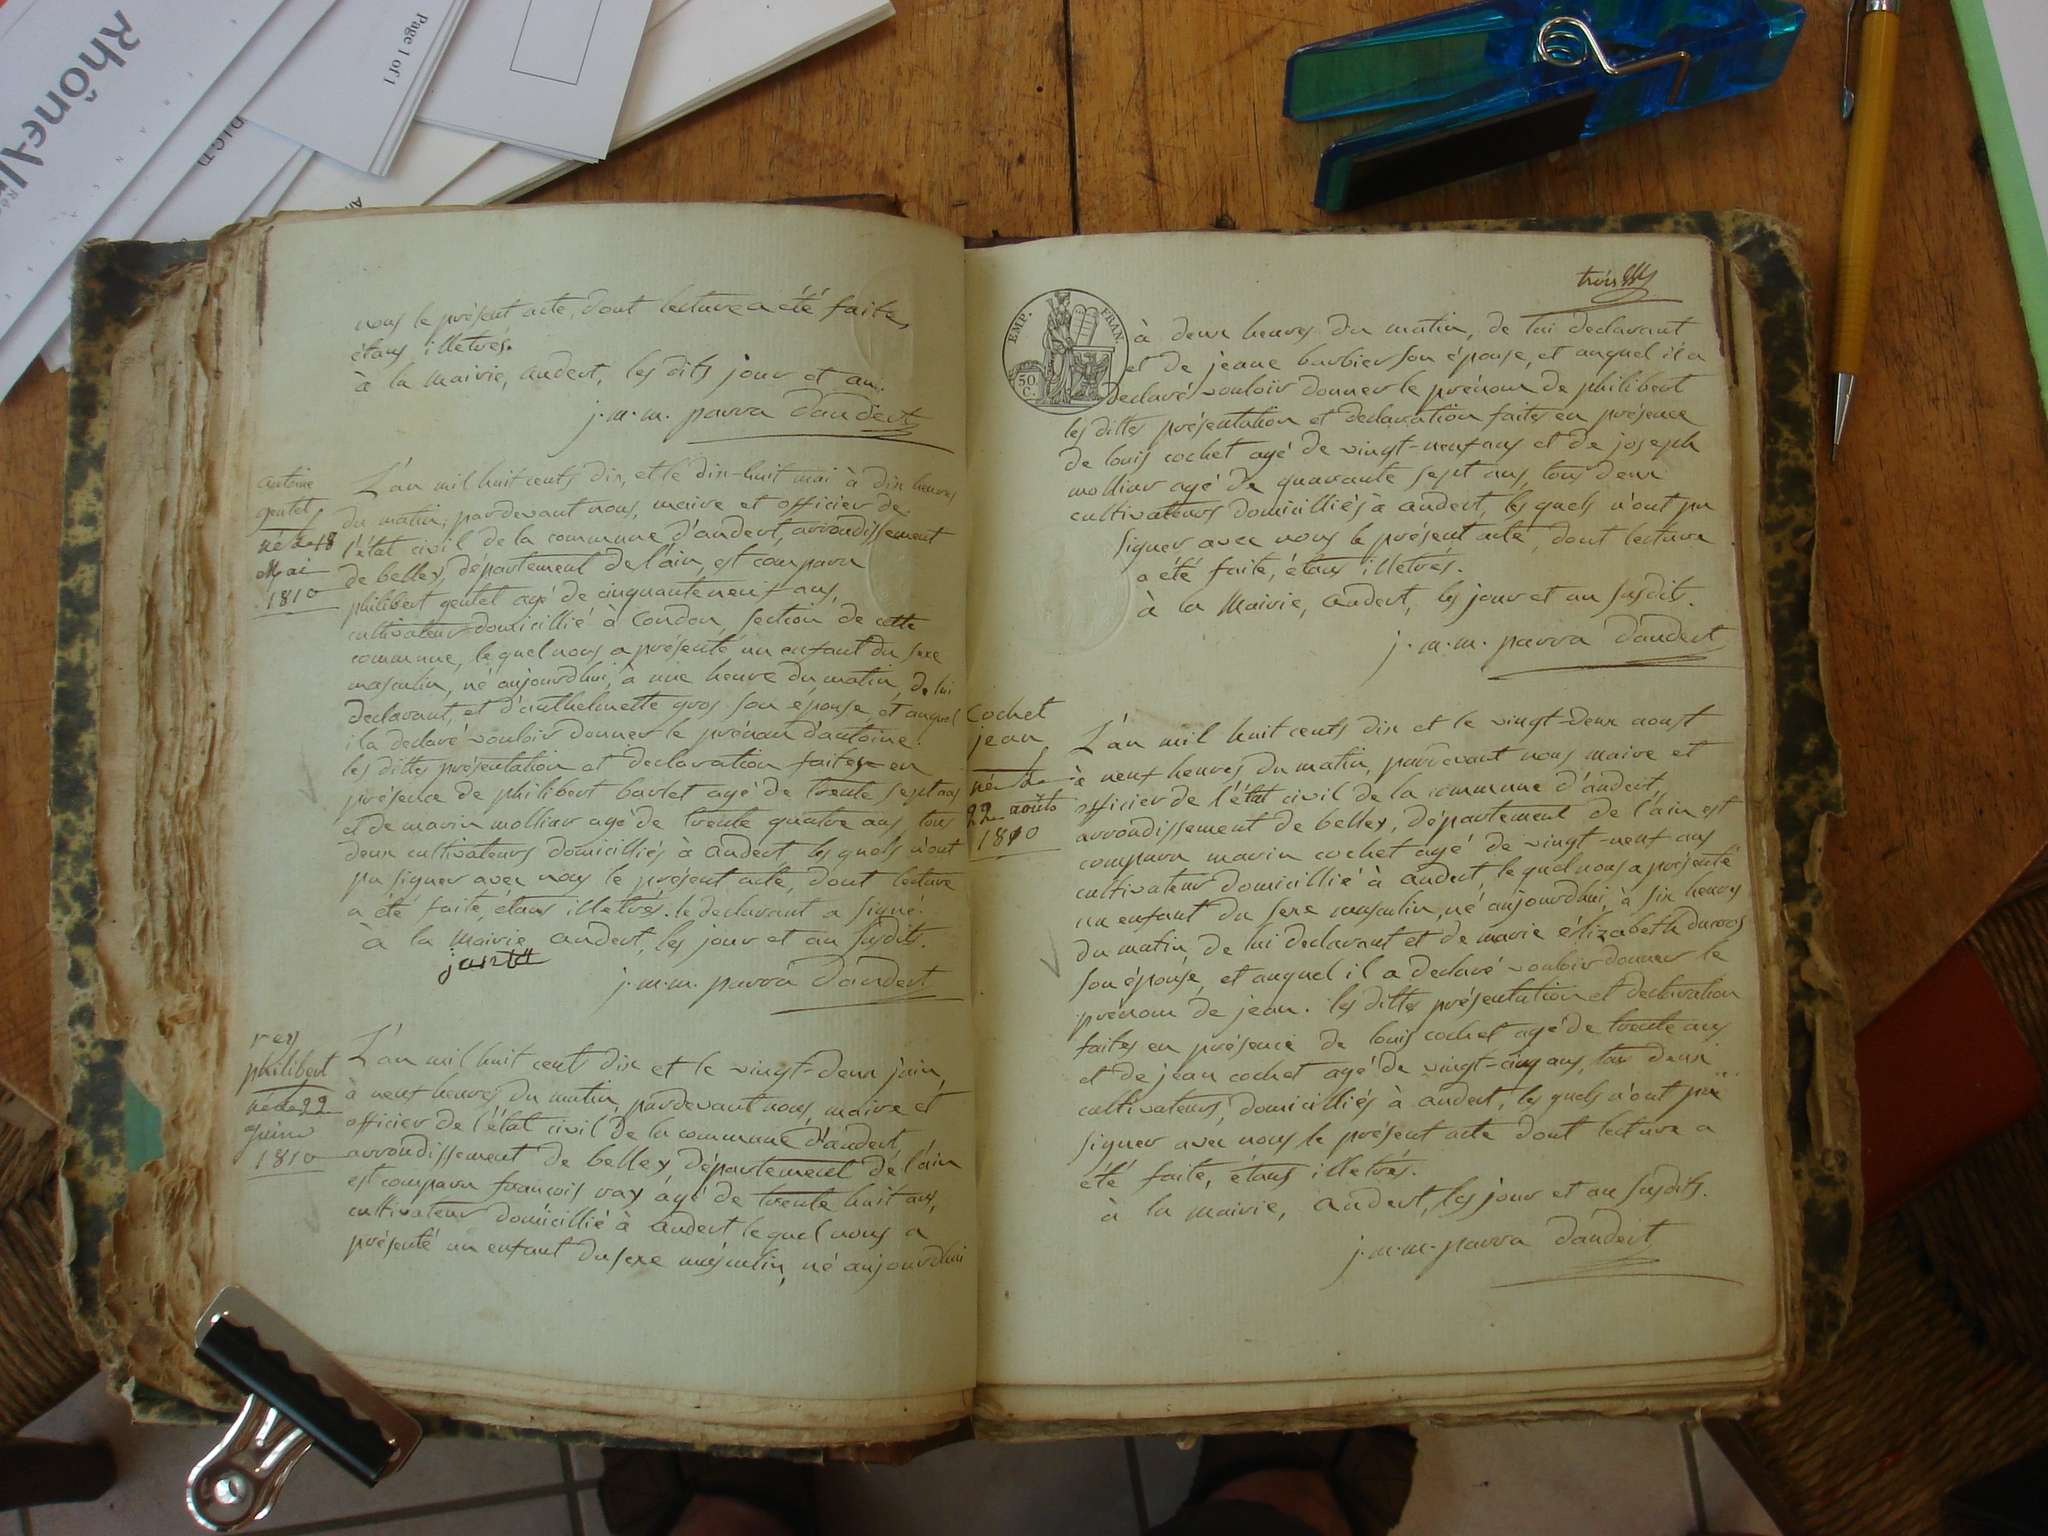 Rhône-Al
Page 1 of 1
nous le présent acte, dont lecture a été faite,
étans illetrés.
à la Mairie, andert, les dits jour et an.
j. m. m. parra d'andert
antoine
gentet
né le 18
Mai
1810
L'an mil huit cents dix, et le dix-huit mai à dix heures
du matin, pardevant nous, maire et officier de
l'état civil de la commune d'andert, arrondissement
de belley, département de l'ain, est comparu
philibert gentet agé de cinquante neuf ans,
cultivateur domicillié à Condon, section de cette
commune, le quel nous a présenté un enfant du sexe
masculin, né aujourdhui, à une heure du matin, de lui
declarant, et d'anthelmette gros son épouse, et auquel
il a declaré vouloir donner le prénom d'antoine.
les dittes présentation et declaration faites en
présence de philibert barlet agé de trente sept ans
et de marin molliar agé de trente quatre ans tous
deux cultivateurs domicilliés à andert les quels n'ont
pu signer avec nous le présent acte, dont lecture
a été faite, étans illetrés. le declarant a signé.
à la Mairie andert, les jour et an susdits.
j. m. m. parra d'andert
rey
philibert
né le 22
juin
1810
L'an mil huit cents dix et le vingt-deux juin,
à neuf heures du matin, pardevant nous, maire et
officier de l'état civil de la commune d'andert,
arrondissement de belley département de l'ain
est comparu françois ray agé de trente huit ans,
cultivateur domicillié à andert le quel nous a
présenté un enfant du sexe masculin, né aujourdhui
trois
EMP. FRAN.
50 C.
à deux heures du matin, de lui declarant
et de jeane barbier son épouse, et auquel il a
declaré vouloir donner le prénom de philibert
les dittes présentation et declaration faites en présence
de louis cochet agé de vingt-neuf ans et de joseph
molliar agé de quarante sept ans, tous deux
cultivateurs domicilliés à andert, les quels n'ont pu
signer avec nous le présent acte, dont lecture
a été faite, étans illetrés.
à la Mairie, andert, les jour et an susdits.
j. m. m. parra d'andert
cochet
jean
né le
22 août
1810
L'an mil huit cents dix et le vingt-deux aoust
à neuf heures du matin, pardevant nous maire et
officier de l'état civil de la commune d'andert,
arrondissement de belley, département de l'ain est
comparu marin cochet agé de vingt-neuf ans
cultivateur domicillié à andert, le quel nous a présenté
un enfant du sexe masculin, né aujourdhui, à six heures
du matin, de lui declarant et de marie élizabeth
son épouse, et auquel il a declaré vouloir donner le
prénom de jean. les dittes présentation et declaration
faites en présence de louis cochet agé de trente ans
et de jean cochet agé de vingt-cinq ans, tous deux
cultivateurs, domicilliés à andert, les quels n'ont pu
signer avec nous le présent acte dont lecture a
été faite, étans illetrés.
à la mairie, andert, les jour et an susdits.
j. m. m. parra d'andert